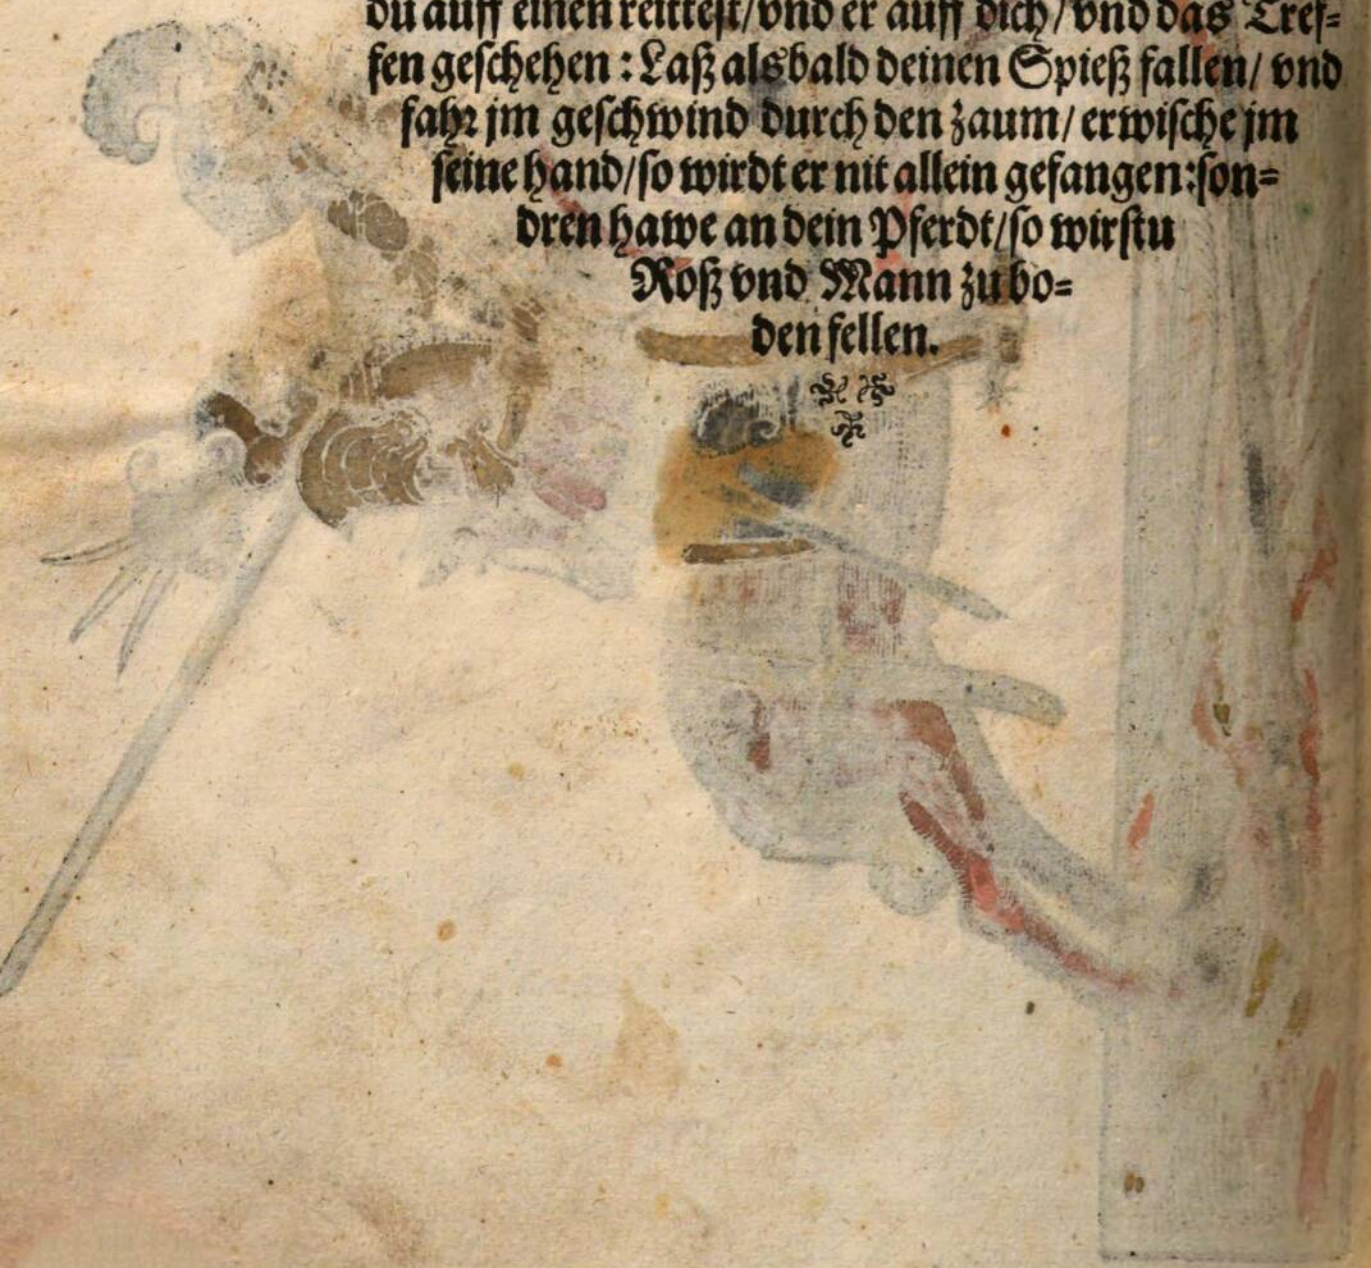 du auff einen reittest/ vnd er auff dich/ vnd das Tref-
fen geschehen: Laß alsbald deinen Spieß fallen/ vnd
fahr jm geschwind durch den zaum/ erwische jm
seine hand/ so wirdt er nit allein gefangen: son-
dren hawe an dein Pferdt/ so wirstu
Roß vnd Mann zu bo-
den fellen.